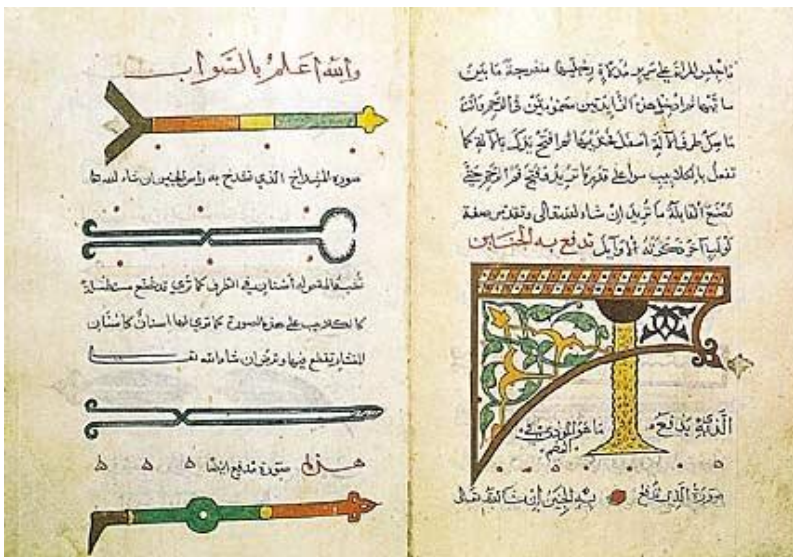 فاجلس المراة على سرير مدلاة رجليها منفرجة ما بين
ساقيها ثم ادخل هذين الزايدتين مضمومتين في الرحم وانت
ماسك طرف الآلة اسفل فخذيها ثم افتح يدك بالآلة كما
تفعل بالكلاليب سواء على قدر ما تريد فتح فم الرحم حتى
تصنع القابلة ما تريد ان شاء الله تعالى صفة
لولب آخر ذكرته الاوايل تدفع به الجنين
ما هو
صورة الذي تدفع به الجنين ان شاء الله تعالى
والله اعلم بالصواب
صورة المشداخ الذي تشدخ به راس الجنين ان شاء الله
له اسنان في الطرف كما ترى وقد تصنع مستطيلة
كالكلاليب على هذه الصورة كما ترى لها اسنان كاسنان
المنشار تقطع بها وترض ان شاء الله
صورة مدفع ايضا